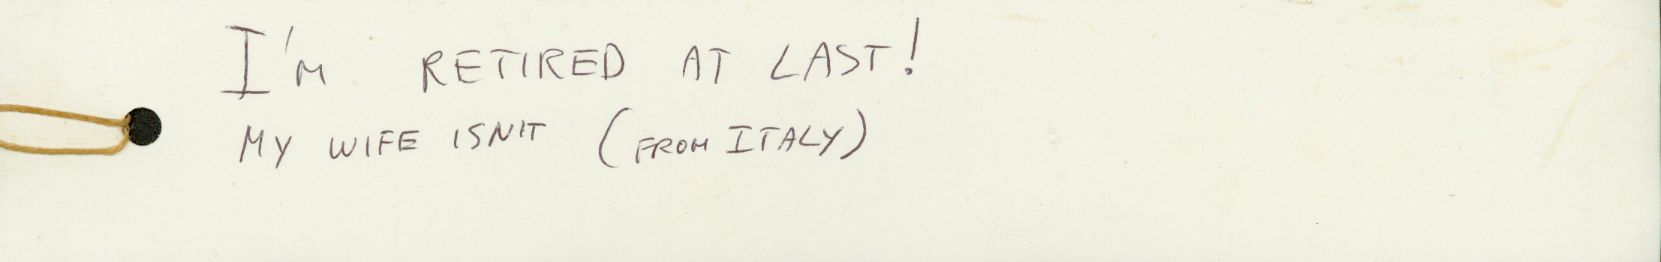 I'm RETIRED AT LAST!
MY WIFE ISN'T (FROM ITALY)